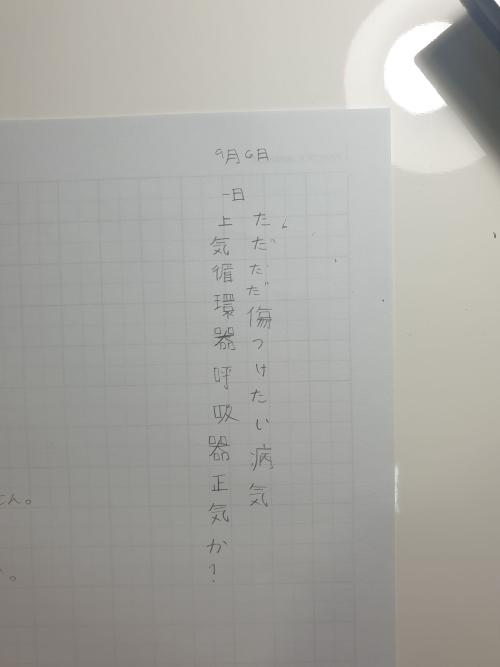 9月6日
一日
ただただ傷つけたい病気
上気循環器呼吸器正気か?